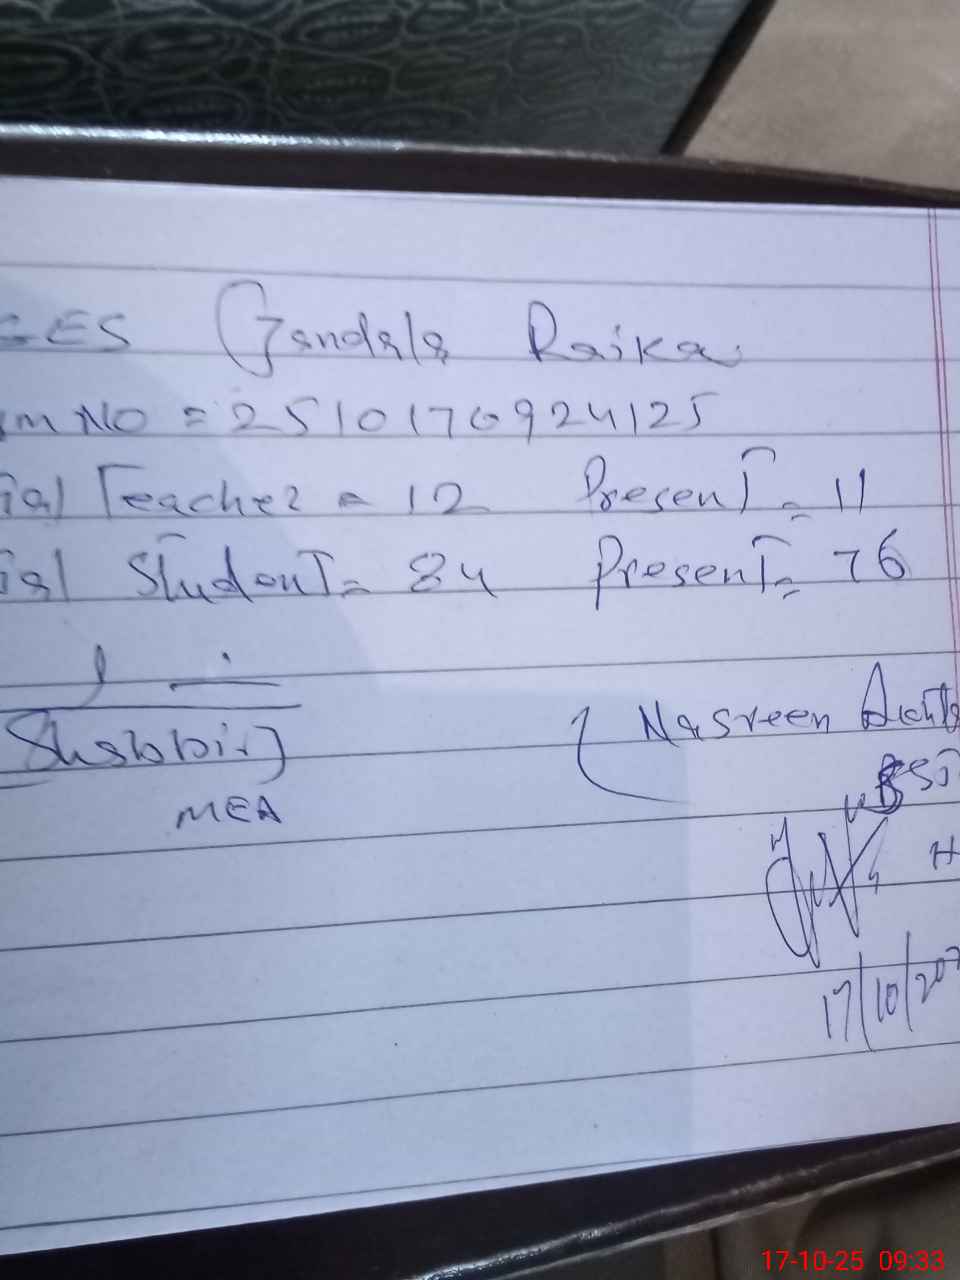 GES Gandala Raika
rm NO = 2510170924125
Teacher = 12 Present = 11
Student = 84 Present = 76
Shabbir)
MEA
(Nasreen Akhta
SST
17/10/20
17-10-25 09:33